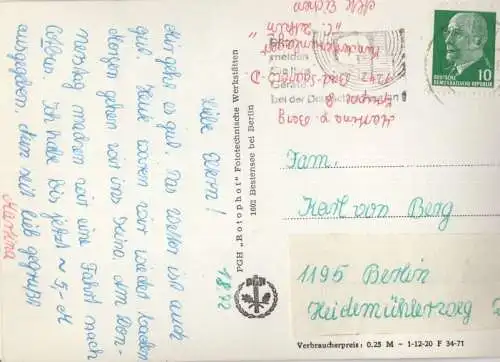 Liebe Eltern!
Mir geht es gut. Das Wetter ist auch
gut. Heute waren wir wieder baden.
Morgen gehen wir ins Kino. Am Don-
nerstag machen wir eine Fahrt nach
Ich habe bis jetzt ~ 5,- M
ausgegeben. Seid lieb gegrüßt
Martina
18.72
PGH „Rotophot" Fototechnische Werkstätten
1602 Bestensee bei Berlin
PGH
Martina v. Berg
1242 Bad Saarow D.
melden
Sie Ihre
Geräte
bei der Deutschen Post!
DEUTSCHE
DEMOKRATISCHE REPUBLIK
10
Fam.
Karl von Berg
1195 Berlin
Heidemühlerweg
Verbraucherpreis: 0,25 M - 1-12-20 F 34-71